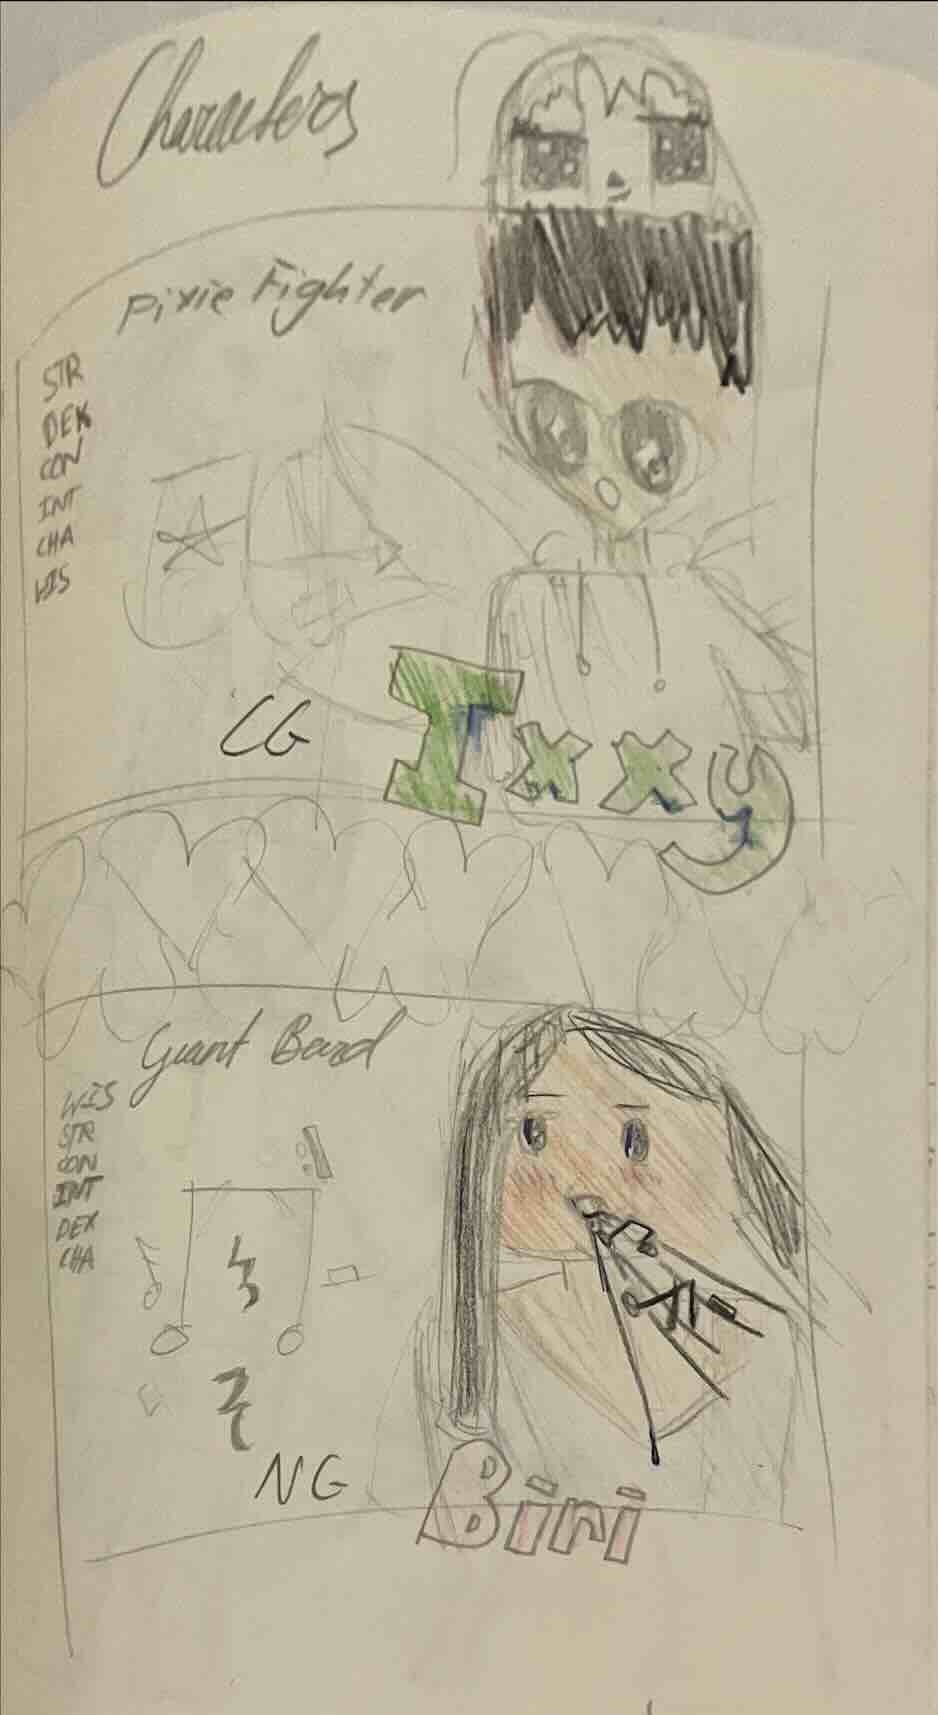 Characters
Pixie Fighter
STR
DEX
CON
INT
CHA
WIS
CG
Ixxy
Giant Bard
WIS
STR
CON
INT
DEX
CHA
NG
Biri